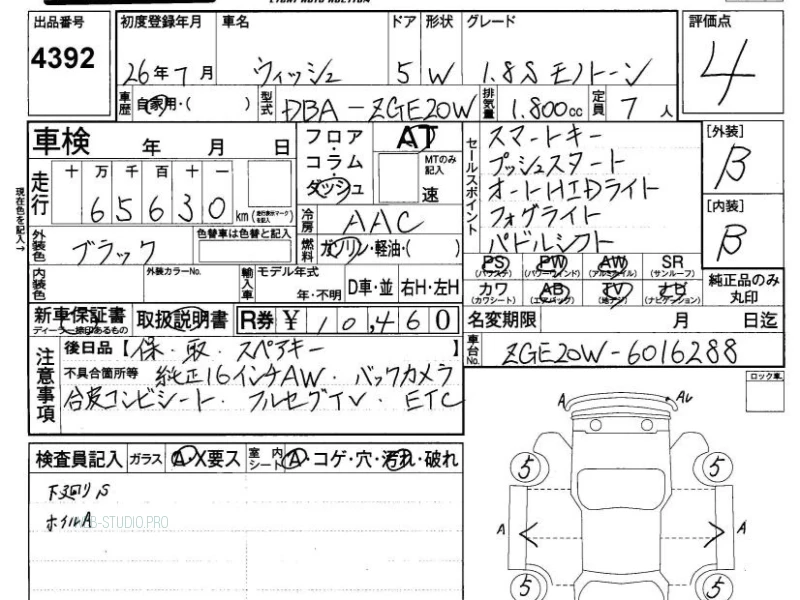 出品番号 初度登録年月 車名 ドア 形状 グレード 評価点
4392 26年7月 ウィッシュ 5 W 1.8S モノトーン 4
車歴 自家用・( ) 型式 DBA-ZGE20W 排気量 1.800cc 定員 7人
車検 年 月 日
フロア・コラム・ダッシュ AT MTのみ記入 速
セールスポイント
スマートキー
プッシュスタート
オートHIDライト
フォグライト
パドルシフト
[外装] B
[内装] B
現在色を記入→
走行 十 万 千 百 十 一
65630 km (走行表示マークを記入)
冷房 AAC
燃料 ガソリン・軽油・( )
外装色 ブラック 色替車は色替と記入
内装色 外装カラーNo. 輸入車 モデル年式 年・不明 D車・並 右H・左H
PS (パワステ) PW (パワーウィンド) AW (アルミホイル) SR (サンルーフ)
カワ (カワシート) AB (エアバッグ) TV (地デジ) ナビ (ナビゲーション)
純正品のみ丸印
新車保証書 ディーラー捺印あるもの 取扱説明書 R券 ¥10,460
名変期限 月 日迄
車台No. ZGE20W-6016288
注意事項
後日品【保・取・スペアキー】
不具合箇所等 純正16インチAW・バックカメラ
合皮コンビシート・フルセグTV・ETC
ロック車
検査員記入 ガラス A・X要ス 室内シート A・コゲ・穴・汚れ・破れ
下廻りS
ホイルA
WEB-STUDIO.PRO
A
5 5
A A
5 5